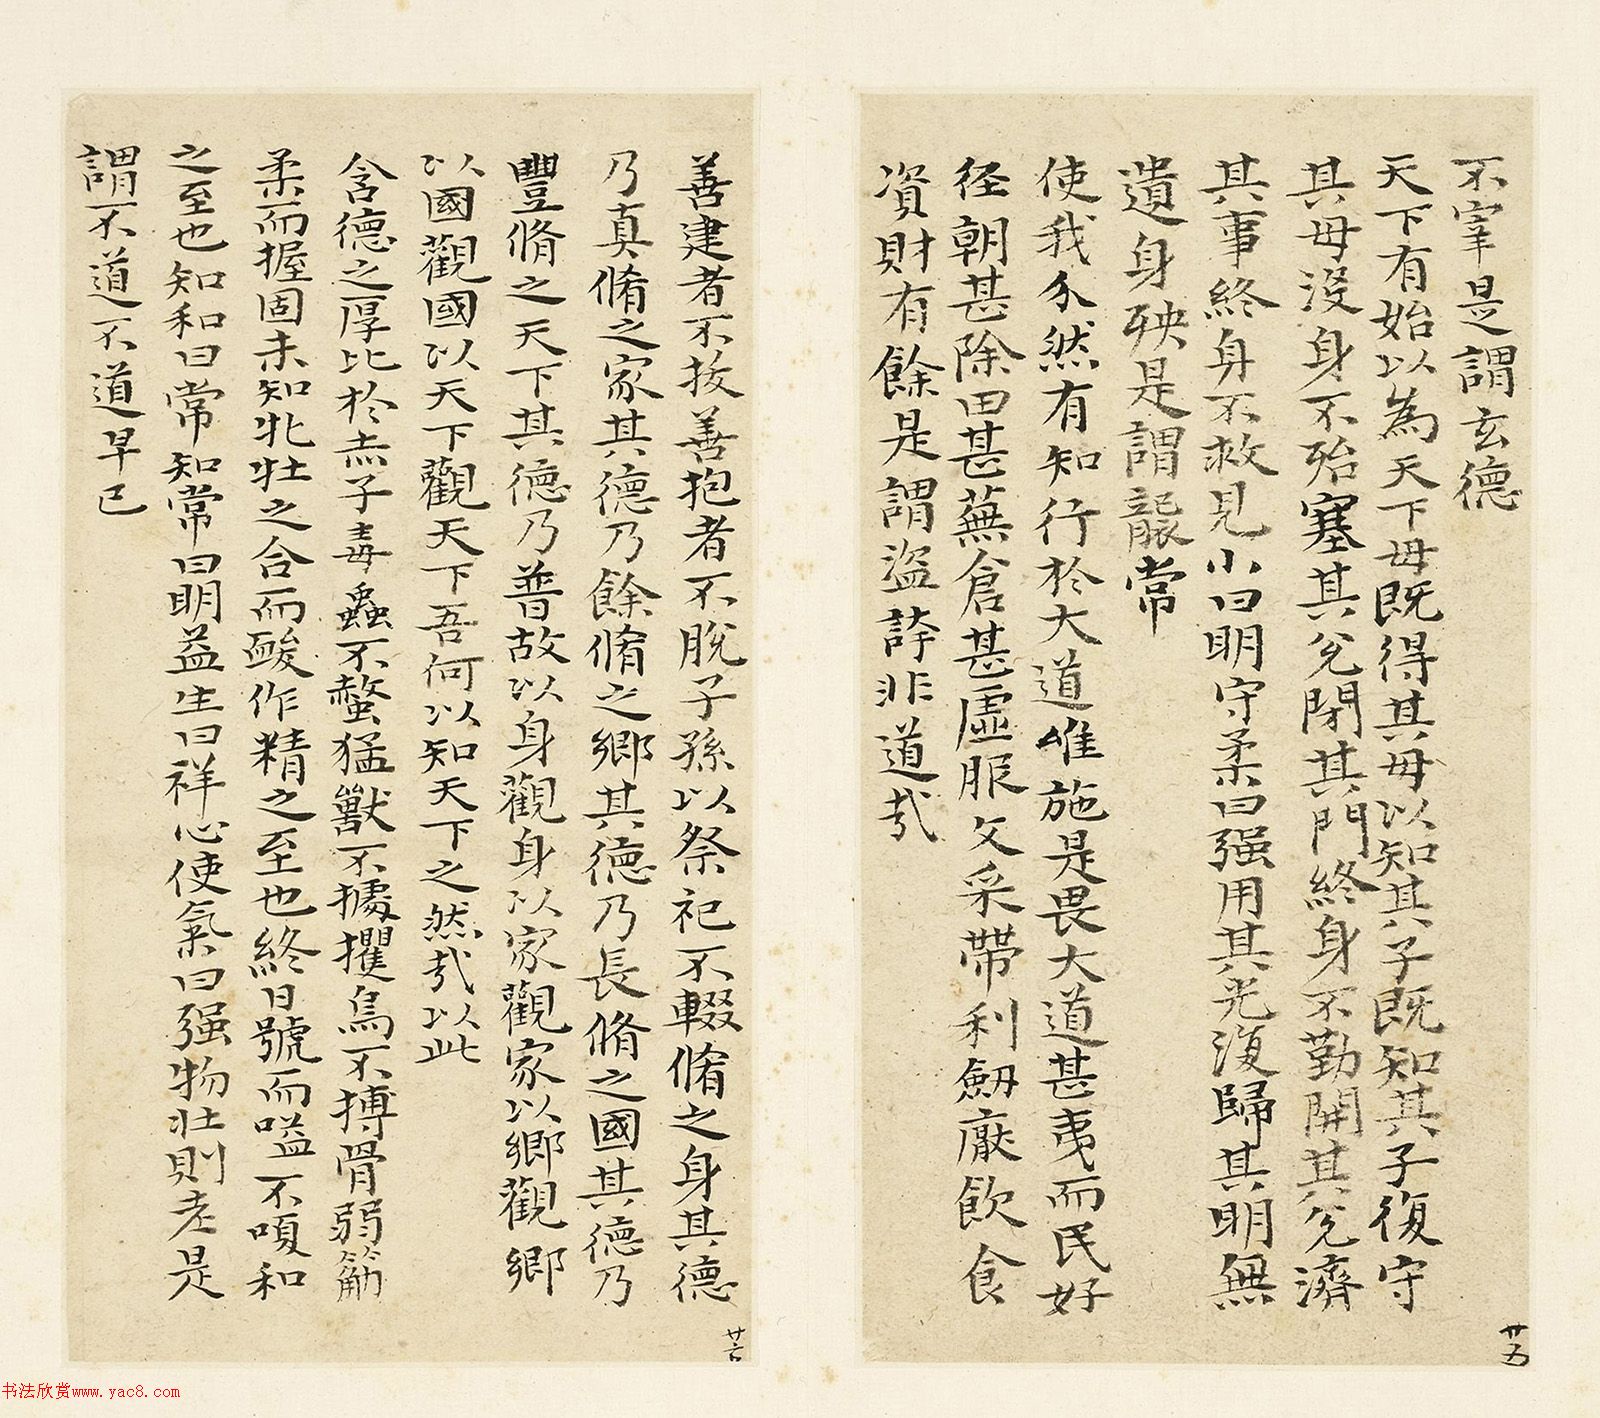 不宰是謂玄德
天下有始以為天下母既得其母以知其子既知其子復守
其母沒身不殆塞其兌閉其門終身不勤開其兌濟
其事終身不救見小曰明守柔曰强用其光復歸其明無
遺身殃是謂襲常
使我介然有知行於大道唯施是畏大道甚夷而民好
径朝甚除田甚蕪倉甚虛服文采帶利劒厭飲食
資財有餘是謂盜誇非道哉
廿五
善建者不拔善抱者不脫子孫以祭祀不輟脩之身其德
乃真脩之家其德乃餘脩之鄉其德乃長脩之國其德乃
豐脩之天下其德乃普故以身觀身以家觀家以鄉觀鄉
以國觀國以天下觀天下吾何以知天下之然哉以此
含德之厚比於赤子毒蟲不螫猛獸不據攫鳥不搏骨弱筋
柔而握固未知牝牡之合而䘒作精之至也終日號而嗌不嗄和
之至也知和曰常知常曰明益生曰祥心使氣曰强物壯則老是
謂不道不道早已
廿六
书法欣赏www.yac8.com